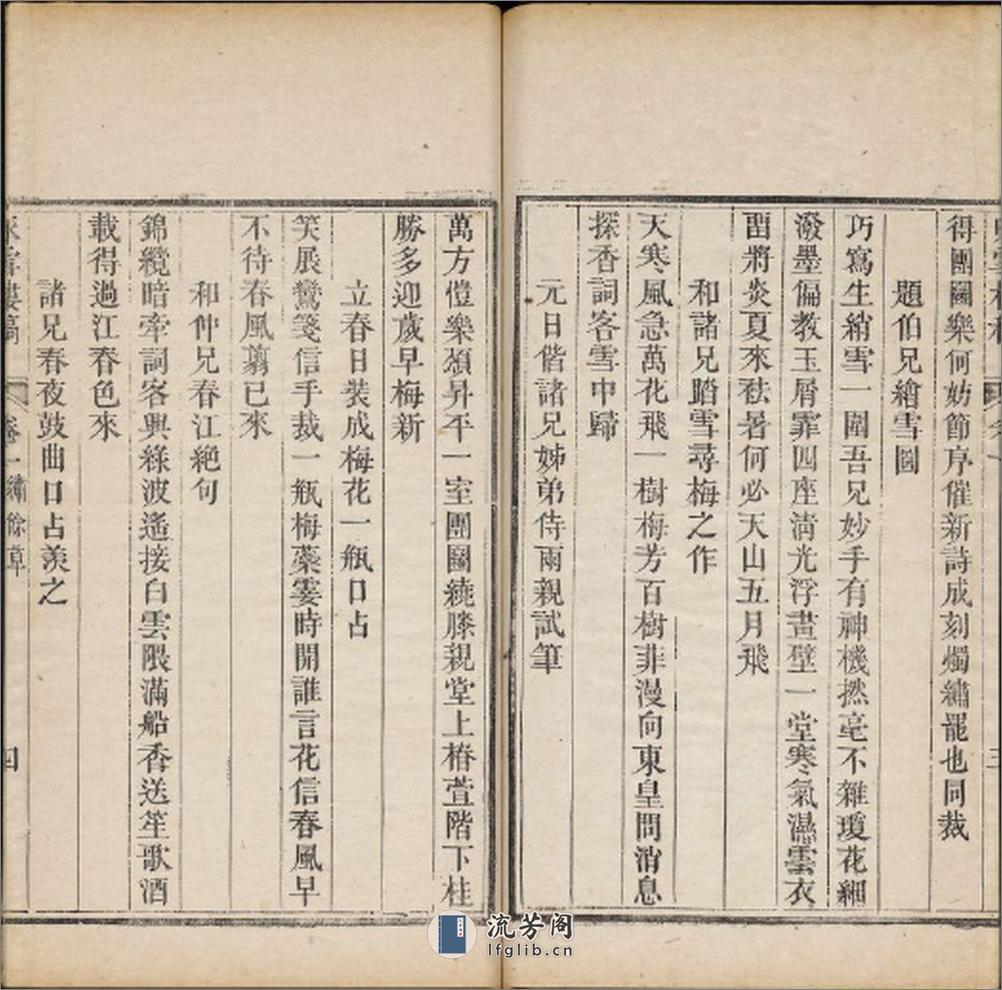 得團圞樂何妨節序催新詩成刻燭繡罷也同裁
題伯兄繪雪圖
巧寫生綃雪一圍吾兄妙手有神機撚亳不雜瓊花細
潑墨偏教玉屑霏四座淸光浮畫壁一堂寒氣濕雲衣
畱將炎夏來袪暑何必天山五月飛
和諸兄踏雪尋梅之作
天寒風急萬花飛一樹梅芳百樹菲漫向東皇問消息
探香詞客雪中歸
元日偕諸兄姊弟侍兩親試筆
萬方愷樂頌昇平一室團圞繞膝親堂上椿萱階下桂
勝多迎歲早梅新
立春日裝成梅花一瓶口占
笑展鸞箋信手裁一瓶梅蘂霎時開誰言花信春風早
不待春風翦已來
和仲兄春江絕句
錦纜暗牽詞客興綠波遙接白雲隈滿船香送笙歌酒
載得過江春色來
諸兄春夜鼓曲口占羨之
卷一繡餘草
四
流芳阁
lfglib.cn